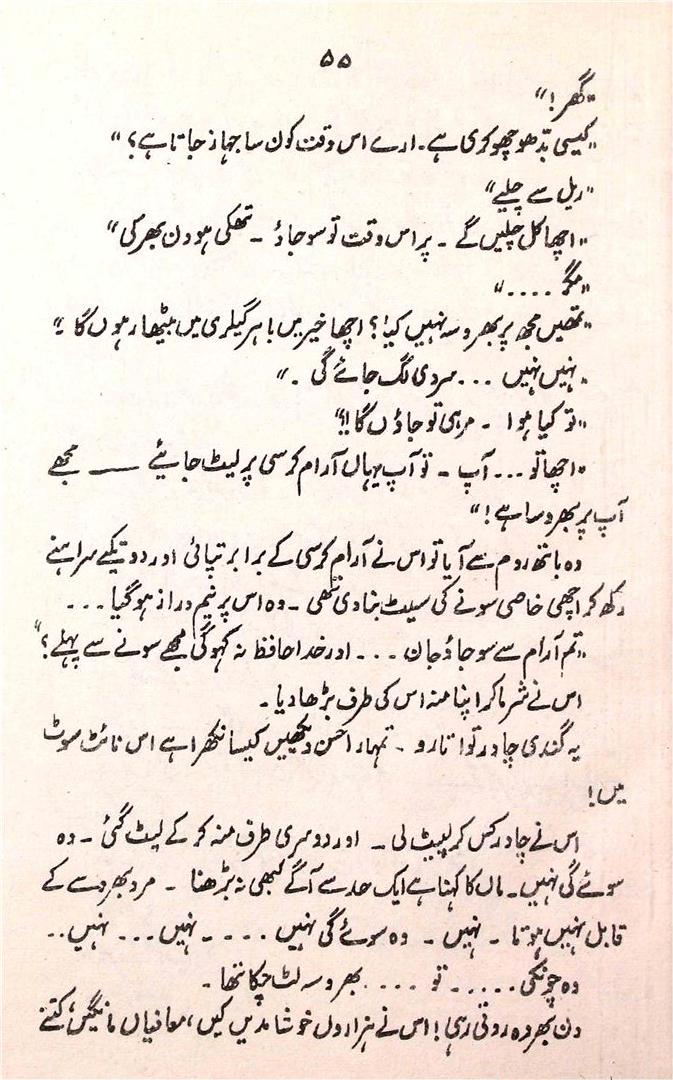 ۵۵
"گھر!"
"کیسی بدّھو چھوکری ہے۔ ارے اس وقت کون سا جہاز جاتا ہے؟"
"ریل سے چلیے"
"اچھا کل چلیں گے ۔ پر اس وقت تو سو جاؤ ۔ تھکی ہو دن بھر کی"
"مگر ۔۔۔۔"
"تمھیں مجھ پر بھروسہ نہیں کیا؟ اچھا خیر میں باہر گیلری میں بیٹھا رہوں گا"
"نہیں نہیں ۔۔۔ سردی لگ جائے گی ۔"
"تو کیا ہوا ۔ مر ہی تو جاؤں گا!!"
"اچھا تو ۔۔۔ آپ ۔ تو آپ یہاں آرام کرسی پر لیٹ جائیے —— مجھے
آپ پر بھروسا ہے!"
وہ باتھ روم سے آیا تو اس نے آرام کرسی کے برابر تپائی اور دو تیکے سراہنے
رکھ کر اچھی خاصی سونے کی سیٹ بنا دی تھی ۔ وہ اس پر نیم دراز ہو گیا ۔۔۔
"تم آرام سے سو جاؤ جان ۔۔۔ اور خدا حافظ نہ کہو گی مجھے سونے سے پہلے؟"
اس نے شرما کر اپنا منہ اس کی طرف بڑھا دیا ۔
یہ گندی چادر تو اتارو ۔ تمہارا حسن دیکھیں کیسا نکھرا ہے اس نائٹ سوٹ
میں!
اس نے چادر کس کر لپیٹ لی ۔ اور دوسری طرف منہ کر کے لیٹ گئی ۔ وہ
سوئے گی نہیں ۔ ماں کا کہنا ہے ایک حد سے آگے کبھی نہ بڑھنا ۔ مرد بھروسے کے
قابل نہیں ہوتا ۔ نہیں ۔ وہ سوئے گی نہیں ۔۔۔۔ نہیں ۔۔۔ نہیں ۔۔
وہ چونکی ۔۔۔۔۔ تو ۔۔۔۔ بھروسہ لٹ چکا تھا ۔
دن بھر وہ روتی رہی! اس نے ہزاروں خوشامدیں کیں، معافیاں مانگیں، کتنے